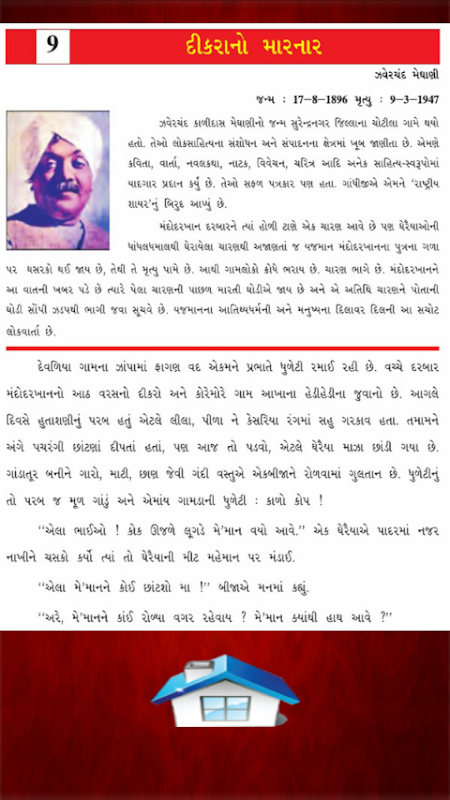 9
દીકરાનો મારનાર
ઝવેરચંદ મેઘાણી
જન્મ : 17-8-1896 મૃત્યુ : 9-3-1947
ઝવેરચંદ કાળીદાસ મેઘાણીનો જન્મ સુરેન્દ્રનગર જિલ્લાના ચોટીલા ગામે થયો
હતો. તેઓ લોકસાહિત્યના સંશોધન અને સંપાદનના ક્ષેત્રમાં ખૂબ જાણીતા છે. એમણે
કવિતા, વાર્તા, નવલકથા, નાટક, વિવેચન, ચરિત્ર આદિ અનેક સાહિત્ય-સ્વરૂપોમાં
યાદગાર પ્રદાન કર્યું છે. તેઓ સફળ પત્રકાર પણ હતા. ગાંધીજીએ એમને 'રાષ્ટ્રીય
શાયર'નું બિરુદ આપ્યું છે.
મંદોદરખાન દરબારને ત્યાં હોળી ટાણે એક ચારણ આવે છે પણ ઘેરૈયાઓની
ધાંધલધમાલથી ઘેરાયેલા ચારણથી અજાણતાં જ યજમાન મંદોદરખાનના પુત્રના ગળા
પર ઘસરકો થઈ જાય છે, તેથી તે મૃત્યુ પામે છે. આથી ગામલોકો ક્રોધે ભરાય છે. ચારણ ભાગે છે. મંદોદરખાનને
આ વાતની ખબર પડે છે ત્યારે પેલા ચારણની પાછળ મારતી ઘોડીએ જાય છે અને એ અતિથિ ચારણને પોતાની
ઘોડી સોંપી ઝડપથી ભાગી જવા સૂચવે છે. યજમાનના આતિથ્યધર્મની અને મનુષ્યના દિલાવર દિલની આ સચોટ
લોકવાર્તા છે.
દેવળિયા ગામના ઝાંપામાં ફાગણ વદ એકમને પ્રભાતે ધુળેટી રમાઈ રહી છે. વચ્ચે દરબાર
મંદોદરખાનનો આઠ વરસનો દીકરો અને કોરેમોરે ગામ આખાના હેડીહેડીના જુવાનો છે. આગલે
દિવસે હુતાશણીનું પરબ હતું એટલે લીલા, પીળા ને કેસરિયા રંગમાં સહુ ગરકાવ હતા. તમામને
અંગે પચરંગી છાંટણાં દીપતાં હતાં, પણ આજ તો પડવો, એટલે ઘેરૈયા માઝા છાંડી ગયા છે.
ગાંડાતૂર બનીને ગારો, માટી, છાણ જેવી ગંદી વસ્તુએ એકબીજાને રોળવામાં ગુલતાન છે. ધુળેટીનું
તો પરબ જ મૂળ ગાંડું અને એમાંય ગામડાની ધુળેટી : કાળો કોપ !
"એલા ભાઈઓ ! કોક ઊજળે લૂગડે મે'માન વયો આવે." એક ઘેરૈયાએ પાદરમાં નજર
નાખીને ચસકો કર્યો ત્યાં તો ઘેરૈયાની મીટ મહેમાન પર મંડાઈ.
"એલા મે'માનને કોઈ છાંટશો મા !" બીજાએ મનમાં કહ્યું.
"અરે, મે'માનને કાંઈ રોળ્યા વગર રહેવાય ? મે'માન ક્યાંથી હાથ આવે ?"